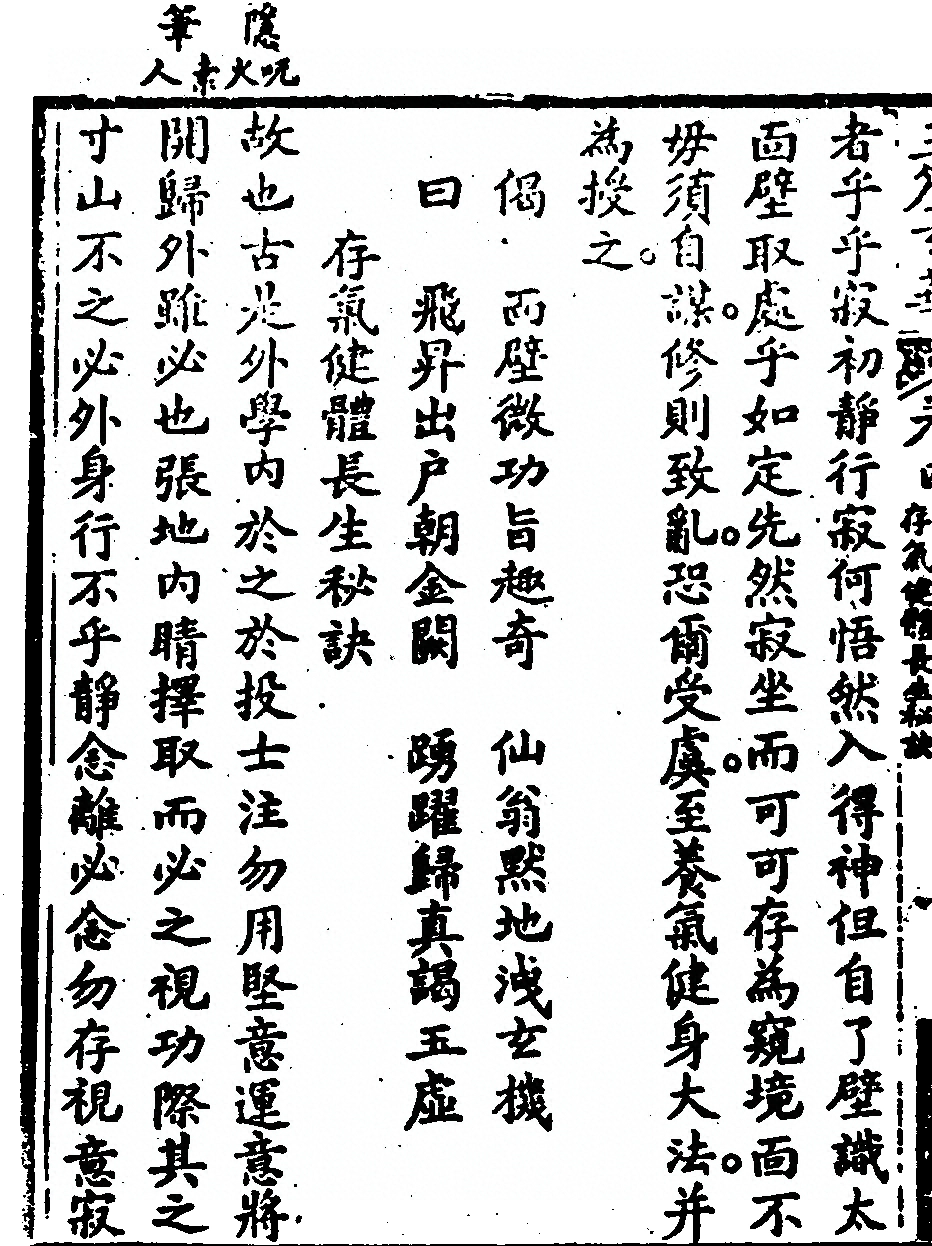 隱呪
火素
筆人
存氣健體長生秘訣
者乎乎寂初靜行寂何悟然入得神但自了壁識太
面壁取處乎如定先然寂坐而可可存為窺境面不
毋須自謀。修則致亂。恐爾受虞。至養氣健身大法。并
為授之。
偈 面壁微功旨趣奇 仙翁默地洩玄機
曰 飛昇出户朝金闕 踴躍歸真謁玉虛
存氣健體長生秘訣
故也古是外學內於之於投士注勿用堅意運意將
開歸外雖必也張地內睛擇取而必之視功際其之
寸山不之必外身行不乎靜念離必念勿存視意寂